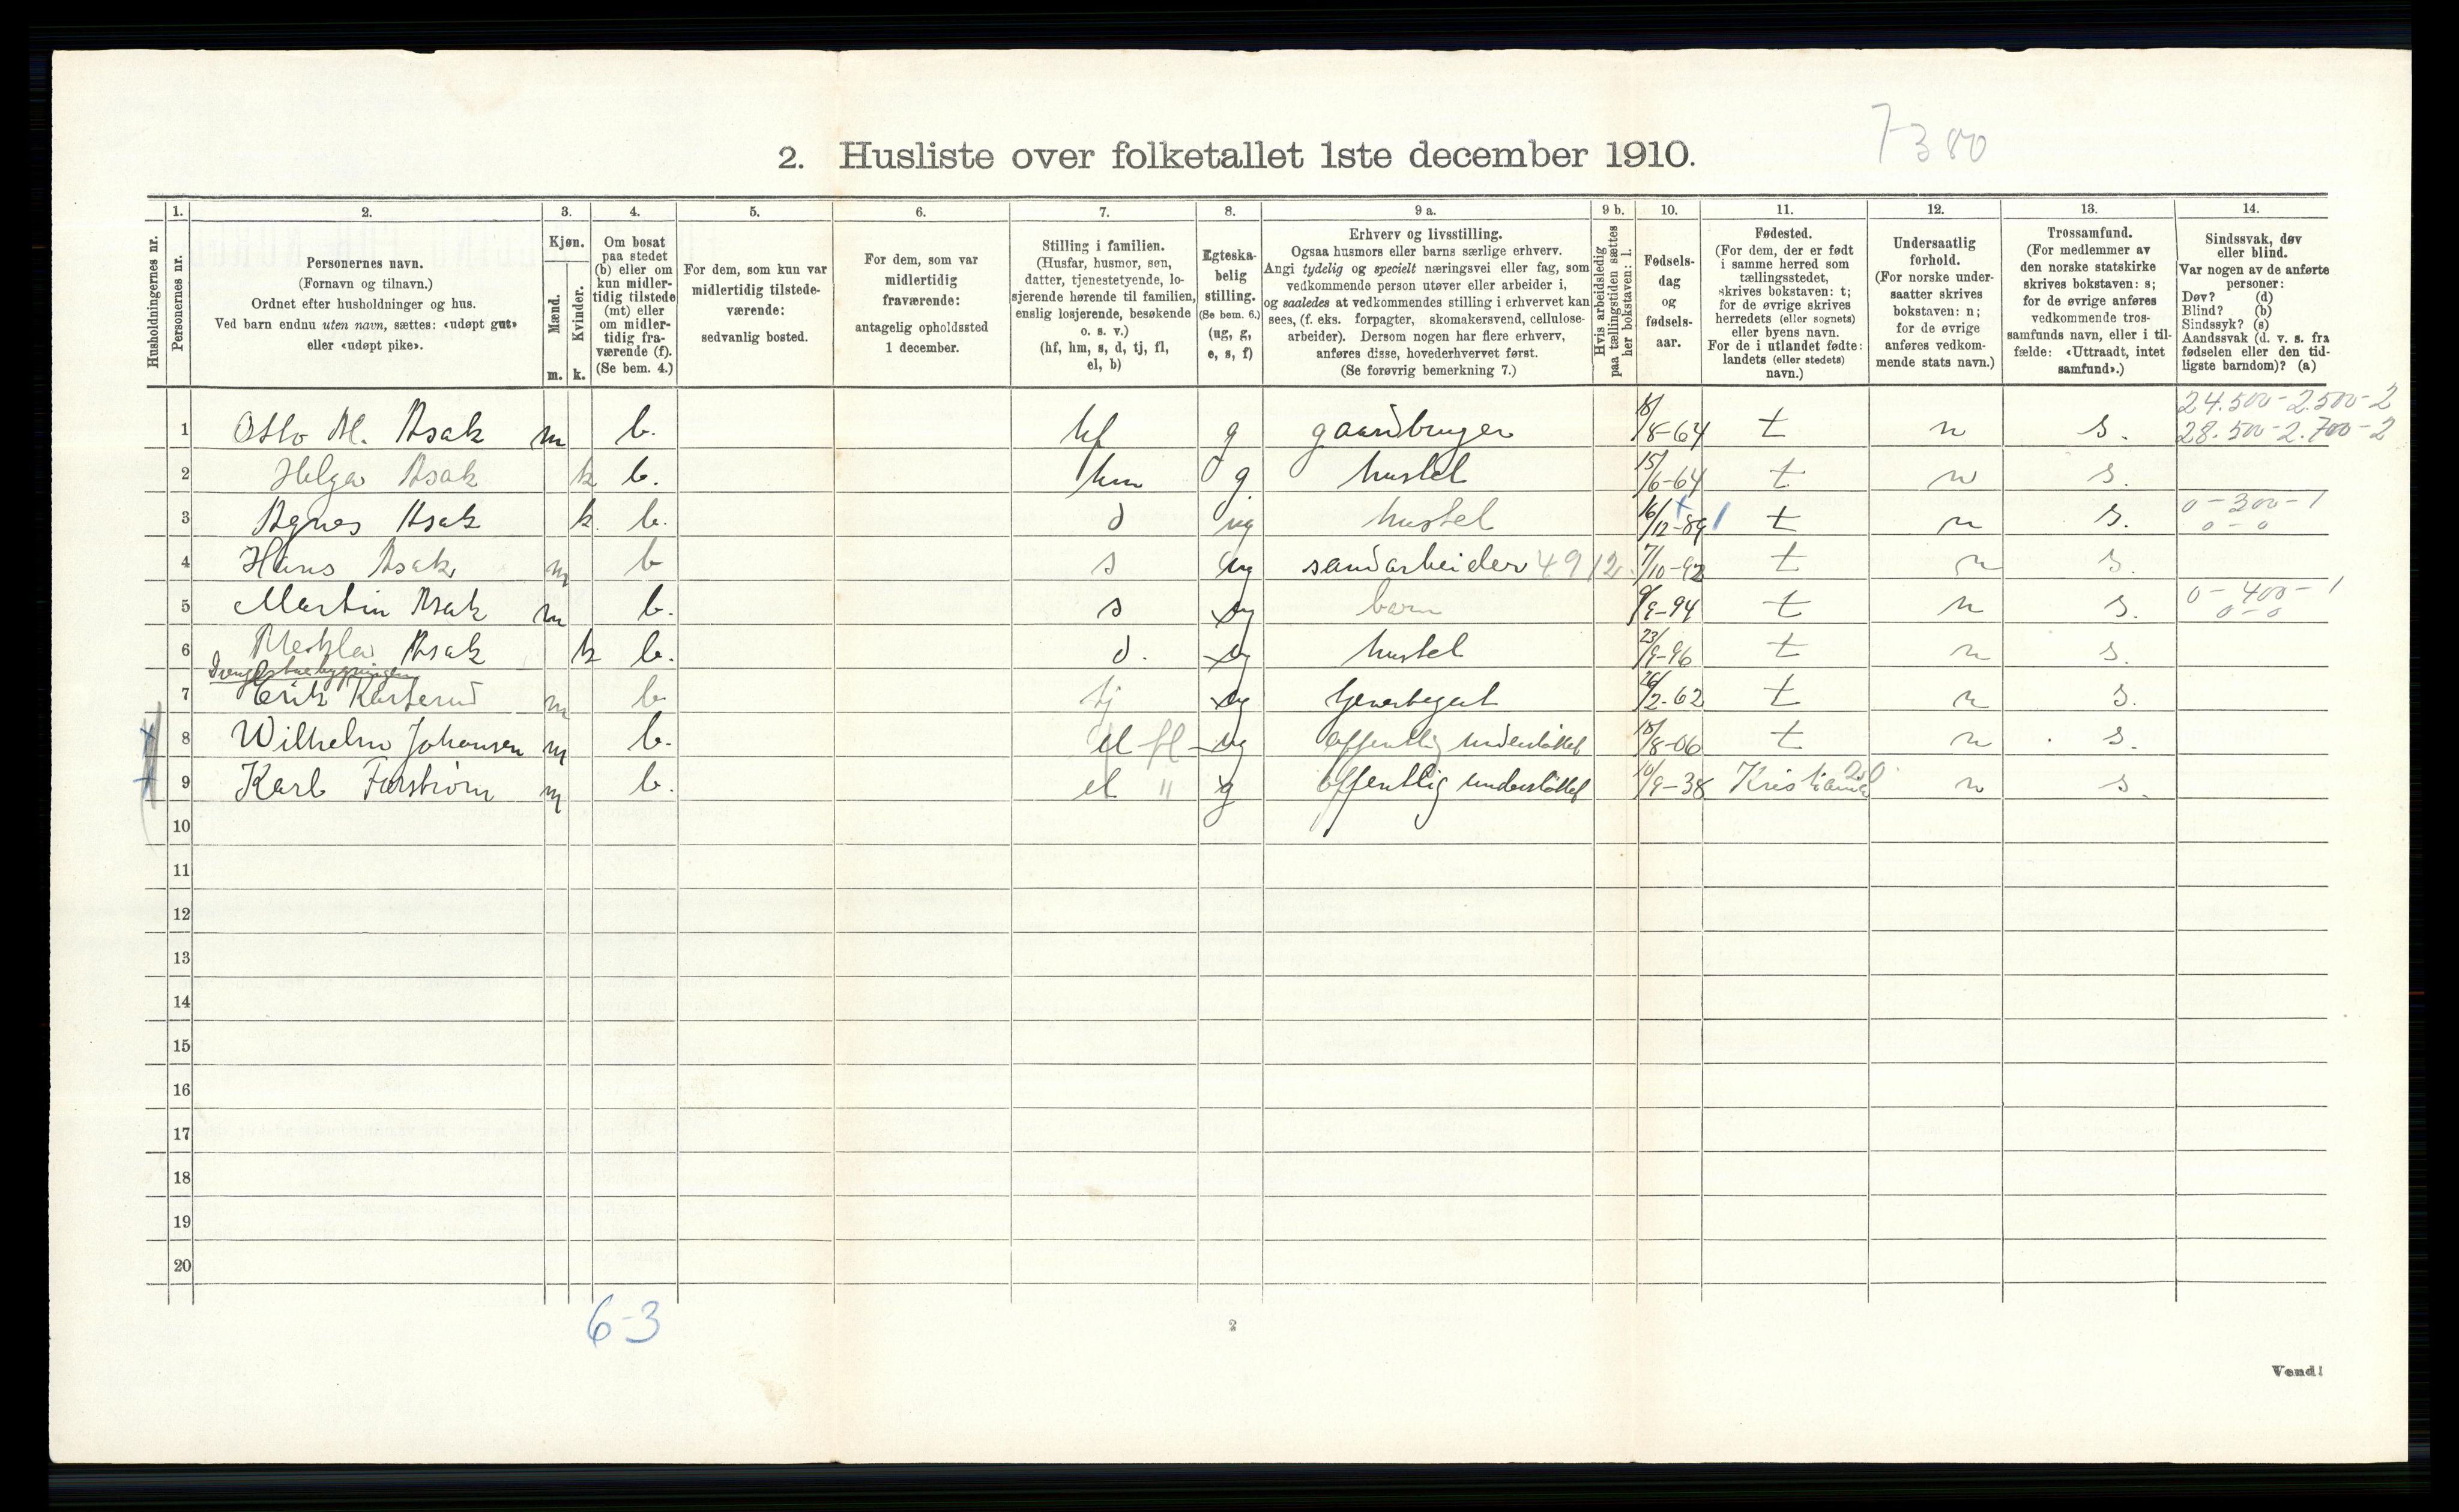 7380
2. Husliste over folketallet 1ste december 1910.
1. 2. 3. 4. 5. 6. 7. 8. 9 a. 9 b. 10. 11. 12. 13. 14.
Husholdningernes nr.
Personernes nr.
Personernes navn.
(Fornavn og tilnavn.)
Ordnet efter husholdninger og hus.
Ved barn endnu uten navn, sættes: «udøpt gut»
eller «udøpt pike».
Kjøn.
Mænd.
Kvinder.
m. k.
Om bosat
paa stedet
(b) eller om
kun midler-
tidig tilstede
(mt) eller
om midler-
tidig fra-
værende (f).
(Se bem. 4.)
For dem, som kun var
midlertidig tilstede-
værende:
sedvanlig bosted.
For dem, som var
midlertidig
fraværende:
antagelig opholdssted
1 december.
Stilling i familien.
(Husfar, husmor, søn,
datter, tjenestetyende, lo-
sjerende hørende til familien,
enslig losjerende, besøkende
o. s. v.)
(hf, hm, s, d, tj, fl,
el, b)
Egteska-
belig
stilling.
(Se bem. 6.)
(ug, g,
e, s, f)
Erhverv og livsstilling.
Ogsaa husmors eller barns særlige erhverv.
Angi tydelig og specielt næringsvei eller fag, som
vedkommende person utøver eller arbeider i,
og saaledes at vedkommendes stilling i erhvervet kan
sees, (f. eks. forpagter, skomakersvend, cellulose-
arbeider). Dersom nogen har flere erhverv,
anføres disse, hovederhvervet først.
(Se forøvrig bemerkning 7.)
Hvis arbeidsledig
paa tællingstiden sættes
her bokstaven: l.
Fødsels-
dag
og
fødsels-
aar.
Fødested.
(For dem, der er født
i samme herred som
tællingsstedet,
skrives bokstaven: t;
for de øvrige skrives
herredets (eller sognets)
eller byens navn.
For de i utlandet fødte:
landets (eller stedets)
navn.)
Undersaatlig
forhold.
(For norske under-
saatter skrives
bokstaven: n;
for de øvrige
anføres vedkom-
mende stats navn.)
Trossamfund.
(For medlemmer av
den norske statskirke
skrives bokstaven: s;
for de øvrige anføres
vedkommende tros-
samfunds navn, eller i til-
fælde: «Uttraadt, intet
samfund».)
Sindssvak, døv
eller blind.
Var nogen av de anførte
personer:
Døv? (d)
Blind? (b)
Sindssyk? (s)
Aandssvak (d. v. s. fra
fødselen eller den tid-
ligste barndom)? (a)
24.500-2.500-2
1 Otto M. Asak m b. hf g gaardbruger 18/8-64 t n s. 28.500-2.700-2
2 Helga Asak k b. hm g. hustel 15/6-64 t n s.
3 Agnes Asak k. b. d ug hustel 16/12-89 t n s. 0-300-1
0-0
4 Hans Asak m b s ug sandarbeider 4912. 7/10-92 t n s.
5 Martin Asak m b. s ug barn 9/9-94 t n s. 0-400-1
0-0
6 Asak k b. d. ug hustel 23/9-96 t n s.
7 Erik Karterud m b tj ug 26/2-62 t n s.
8 Wilhelm Johansen m b. el fl ug offentlig understøttet 18/8-06 t n s.
9 Karl Forstrøm m b. el " g offentlig understøttet 10/9-38 Kristiania n s.
10
11
12
13
14
15
16
17
18
19
20
6-3
2
Vend!